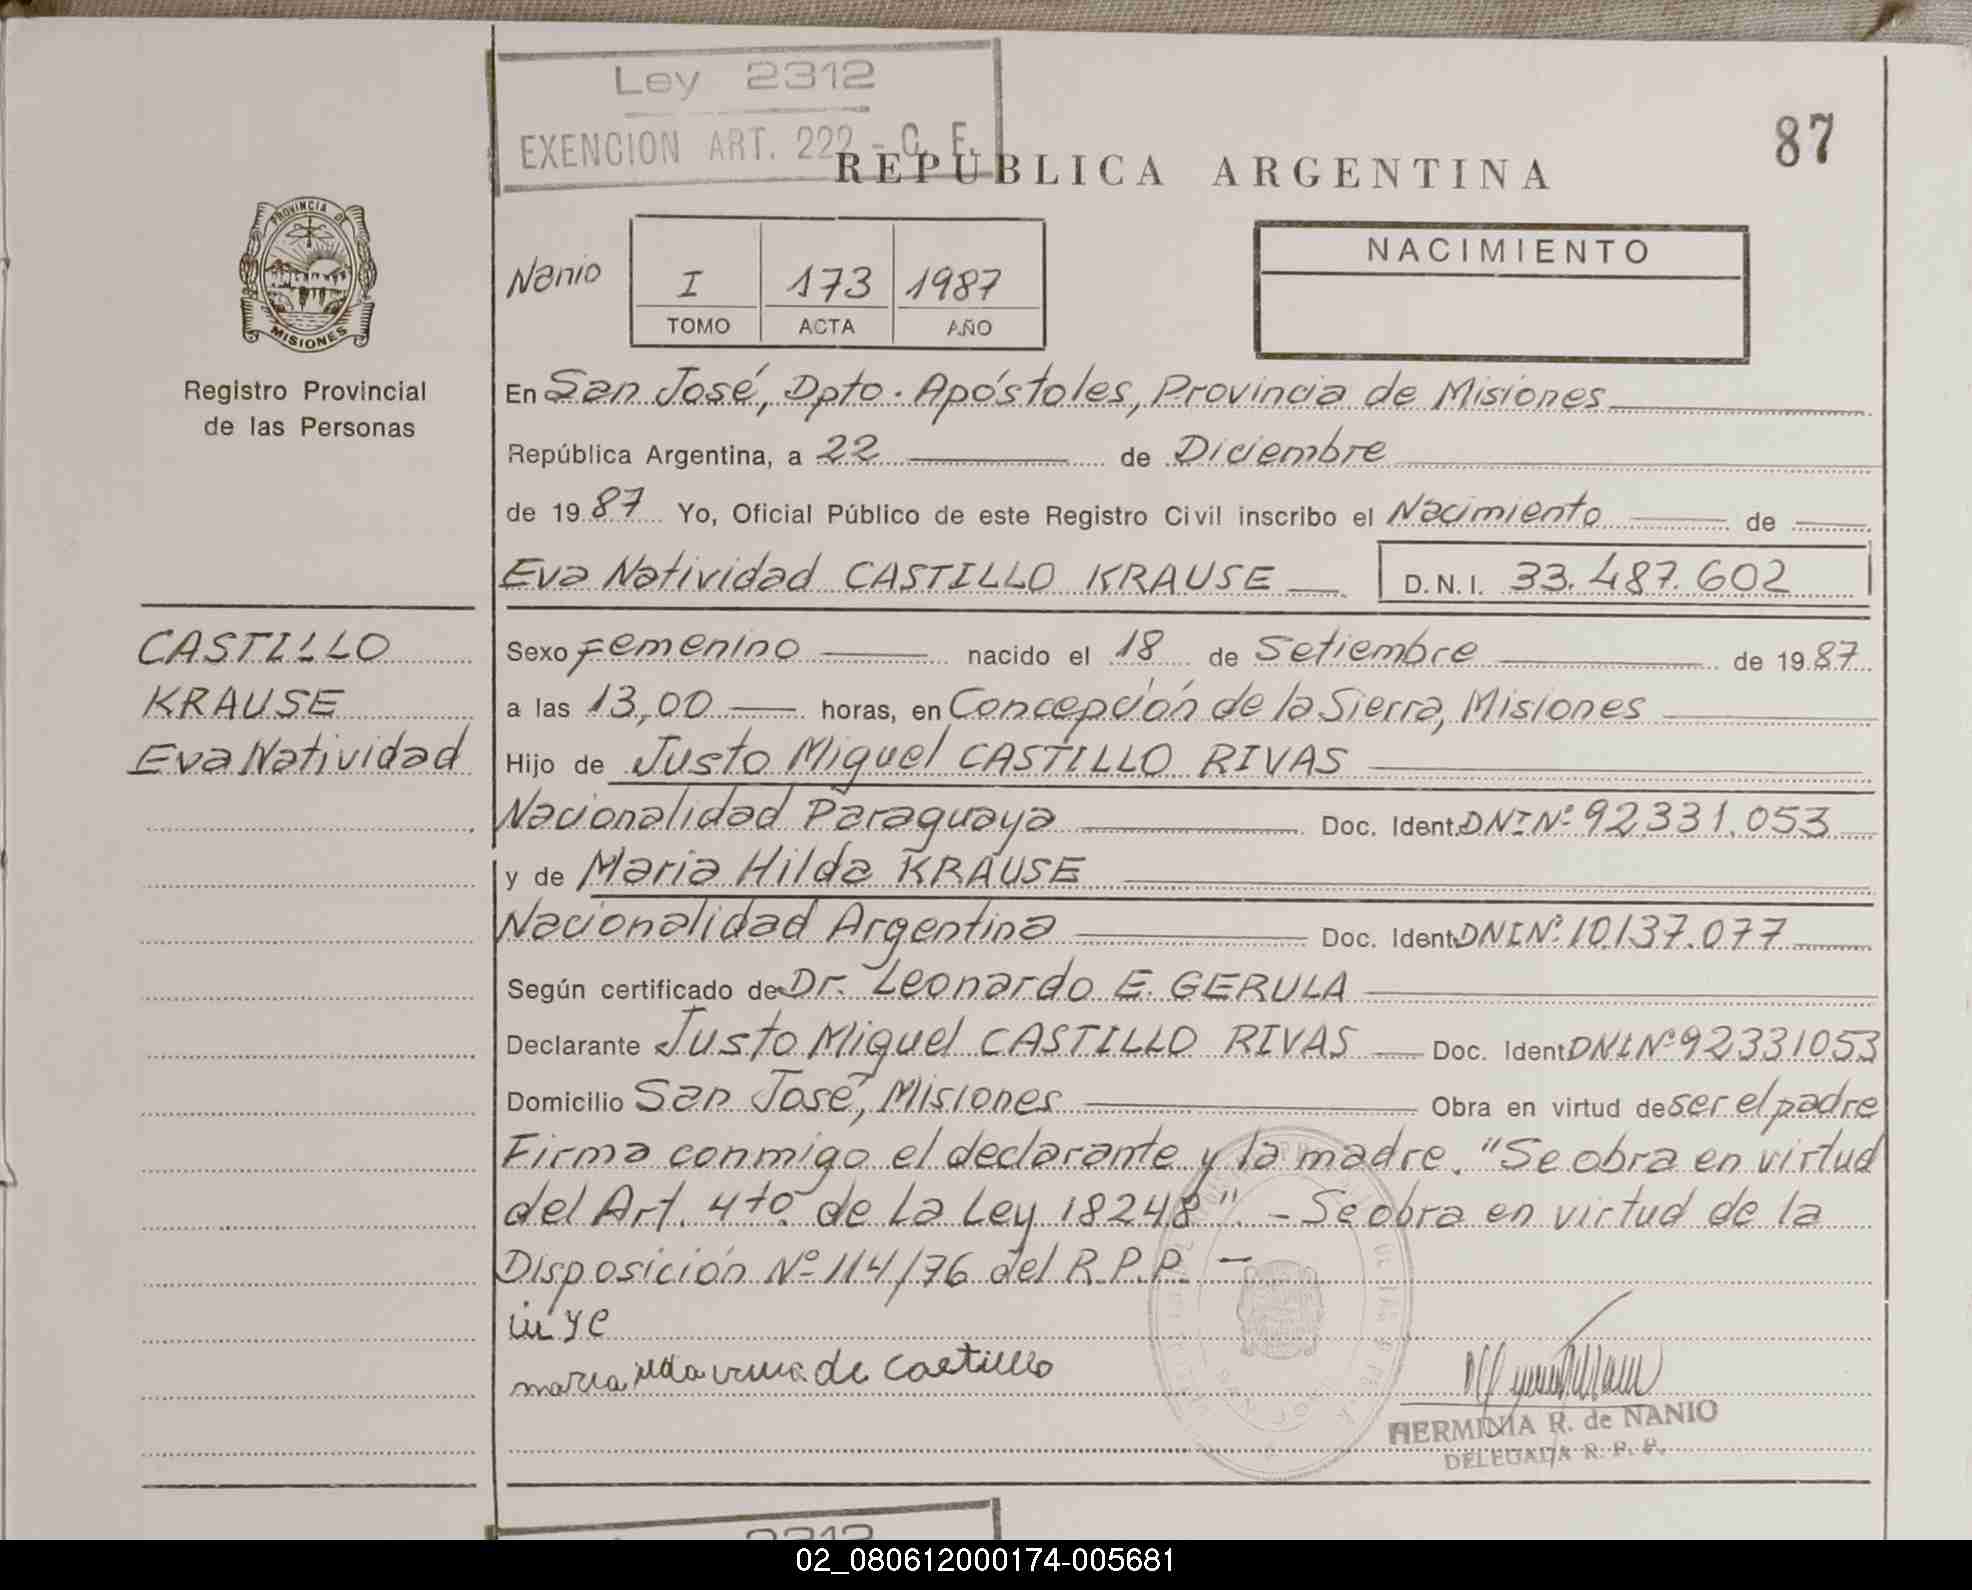 Ley 2312
EXENCION ART. 222 - C. F.
REPUBLICA ARGENTINA
87
PROVINCIA DE
MISIONES
Registro Provincial
de las Personas
Nanio
I 173 1987
TOMO ACTA AÑO
NACIMIENTO
En San José, Dpto. Apóstoles, Provincia de Misiones
República Argentina, a 22 de Diciembre
de 1987 Yo, Oficial Público de este Registro Civil inscribo el Nacimiento de
Eva Natividad CASTILLO KRAUSE D.N.I. 33.487.602
CASTILLO
KRAUSE
Eva Natividad
Sexo Femenino nacido el 18 de Setiembre de 1987
a las 13,00 horas, en Concepción de la Sierra, Misiones
Hijo de Justo Miguel CASTILLO RIVAS
Nacionalidad Paraguaya Doc. Ident. DNI Nº 92.331.053
y de Maria Hilda KRAUSE
Nacionalidad Argentina Doc. Ident. DNI Nº 10.137.077
Según certificado de Dr. Leonardo E. GERULA
Declarante Justo Miguel CASTILLO RIVAS Doc. Ident. DNI Nº 92331053
Domicilio San José, Misiones Obra en virtud de ser el padre
Firma conmigo el declarante y la madre. "Se obra en virtud
del Art. 4to. de la Ley 18248". - Se obra en virtud de la
Disposición Nº 114/76 del R.P.P. -
maria de Castillo
HERMINIA R. de NANIO
DELEGADA R. P. P.
2312
02_080612000174-005681